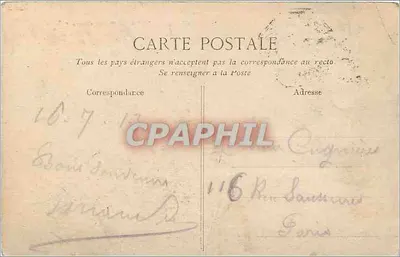 CARTE POSTALE
Tous les pays étrangers n'acceptent pas la correspondance au recto
Se renseigner à la Poste
Correspondance
Adresse
CPAPHIL
Bons Souvenirs
116 Rue Saussures
Paris